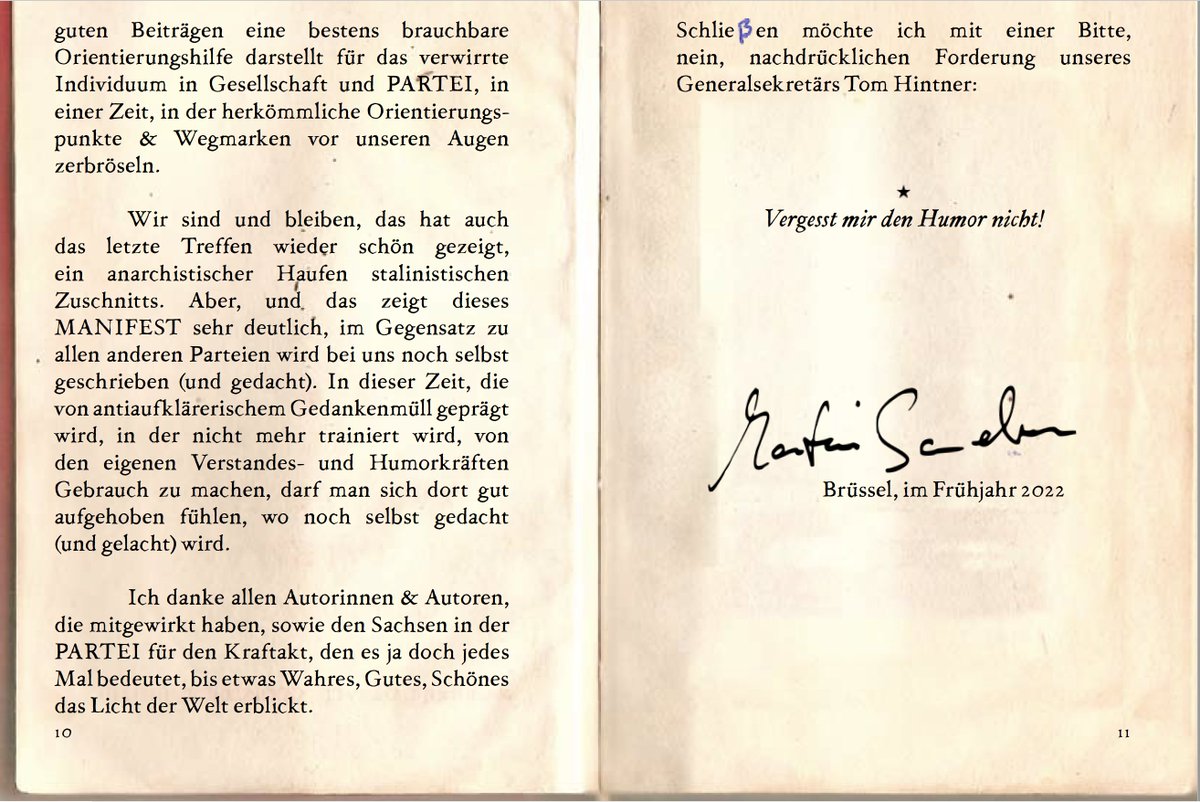 guten Beiträgen eine bestens brauchbare
Orientierungshilfe darstellt für das verwirrte
Individuum in Gesellschaft und PARTEI, in
einer Zeit, in der herkömmliche Orientierungs-
punkte & Wegmarken vor unseren Augen
zerbröseln.
Wir sind und bleiben, das hat auch
das letzte Treffen wieder schön gezeigt,
ein anarchistischer Haufen stalinistischen
Zuschnitts. Aber, und das zeigt dieses
MANIFEST sehr deutlich, im Gegensatz zu
allen anderen Parteien wird bei uns noch selbst
geschrieben (und gedacht). In dieser Zeit, die
von antiaufklärerischem Gedankenmüll geprägt
wird, in der nicht mehr trainiert wird, von
den eigenen Verstandes- und Humorkräften
Gebrauch zu machen, darf man sich dort gut
aufgehoben fühlen, wo noch selbst gedacht
(und gelacht) wird.
Ich danke allen Autorinnen & Autoren,
die mitgewirkt haben, sowie den Sachsen in der
PARTEI für den Kraftakt, den es ja doch jedes
Mal bedeutet, bis etwas Wahres, Gutes, Schönes
das Licht der Welt erblickt.
10
Schließen möchte ich mit einer Bitte,
nein, nachdrücklichen Forderung unseres
Generalsekretärs Tom Hintner:
★
Vergesst mir den Humor nicht!
Martin
Brüssel, im Frühjahr 2022
11